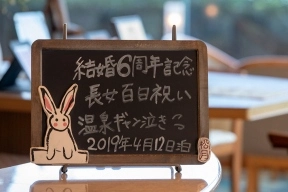 結婚6周年記念
長女百日祝い
温泉ギャン泣きっ
2019年4月12日泊